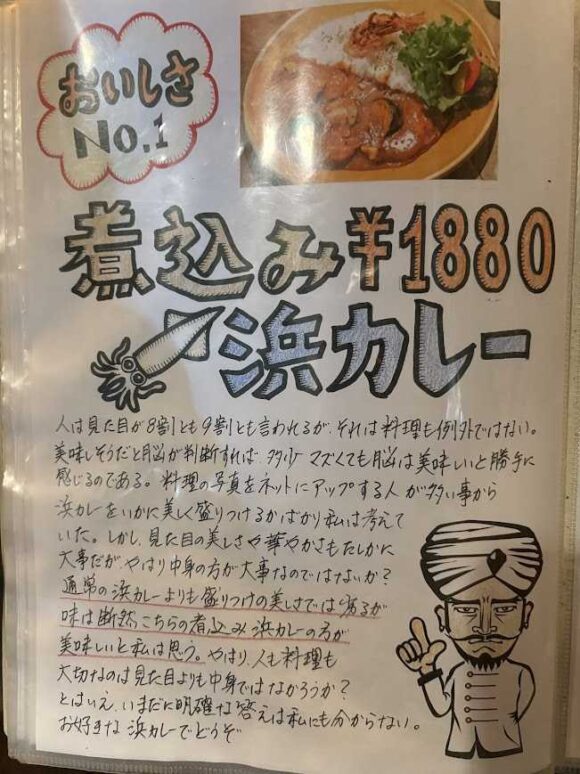 おいしさ
No.1
煮込み ¥1880
浜カレー
人は見た目が8割とも9割とも言われるが、それは料理も例外ではない。
美味しそうだと脳が判断すれば、多少マズくても脳は美味しいと勝手に
感じるのである。料理の写真をネットにアップする人が多い事から
浜カレーをいかに美しく盛りつけるかばかり私は考えて
いた。しかし、見た目の美しさや華やかさもたしかに
大事だが、やはり中身の方が大事なのではないか?
通常の浜カレーよりも盛りつけの美しさでは劣るが
味は断然、こちらの煮込み浜カレーの方が
美味しいと私は思う。やはり、人も料理も
大切なのは見た目よりも中身ではなかろうか?
とはいえ、いまだに明確な答えは私にも分からない。
お好きな浜カレーでどうぞ